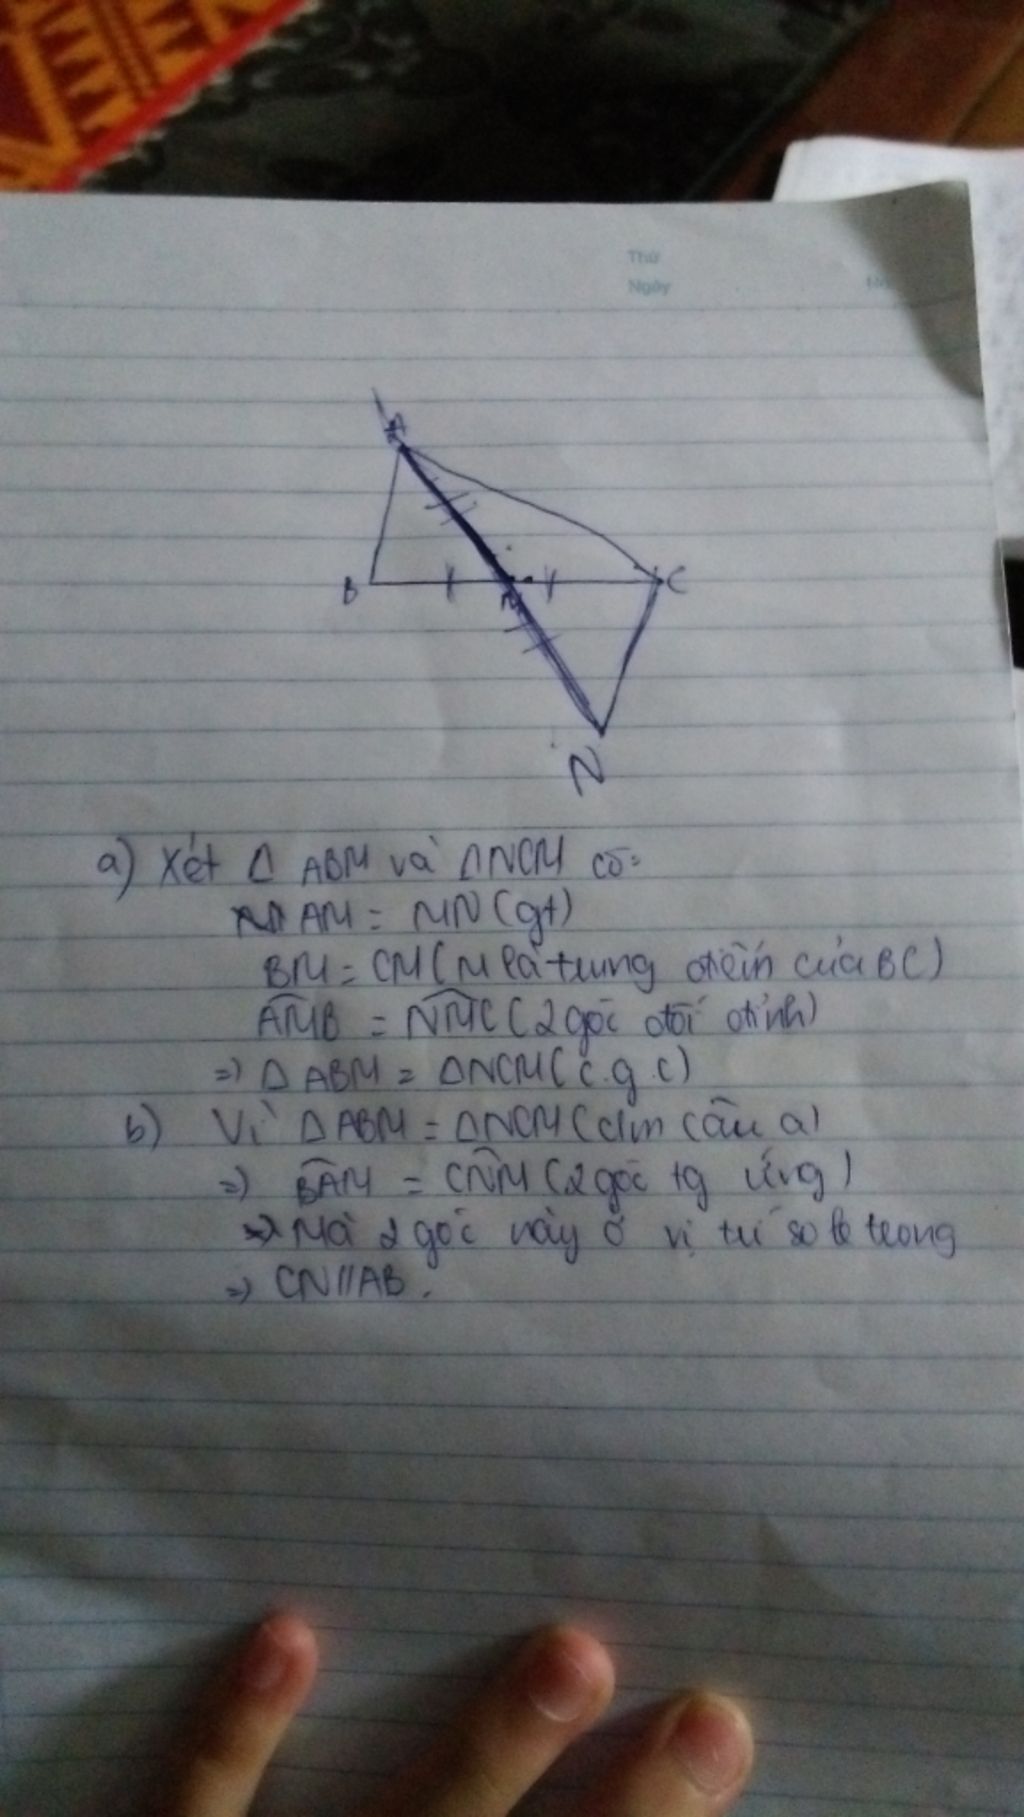 Thứ
Ngày
A
B
C
M
N
a) Xét Δ ABM và ΔNCM có:
AM = MN (gt)
BM = CM (M là trung điểm của BC)
AMB = NMC (2 góc đối đỉnh)
=> Δ ABM = ΔNCM (c.g.c)
b) Vì ΔABM = ΔNCM (cm câu a)
=> BAM = CNM (2 góc tg ứng)
Mà 2 góc này ở vị trí so le trong
=> CN//AB.